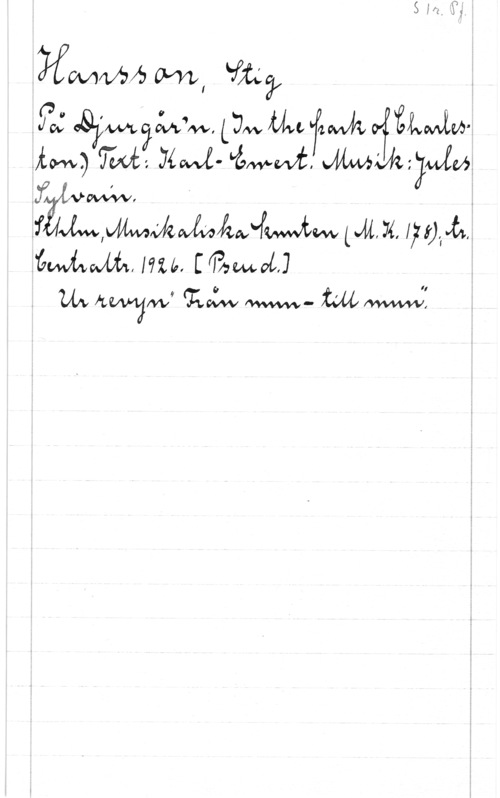 S Tr. Pf.
Hansson, Stig
På Djurgår'n. (In the park of Charles-
ton.) Text: Karl-Ewert. Musik: Jules
Sylvain.
Sthlm, Musikaliska knuten (M.K. 178), tr.
Centraltr. 1926. [Pseud.]
Ur revyn "Från mun- till mun".